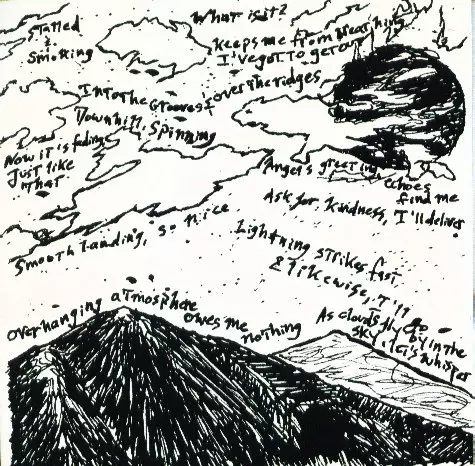 What is it?
Stalled
&
Smoking
Keeps me from
I've got to get
Into the Grooves & over the ridges
Downhill, Spinning
Now it is fading
Just like
That
Angels greeting, echoes
find me
Ask for, Kindness, I'll deliver
Smooth Landing, so nice
Lightning strikes fast
& likewise, I'll go
As clouds fly by in the
sky, let's whisper
overhanging atmosphere
owes me
nothing